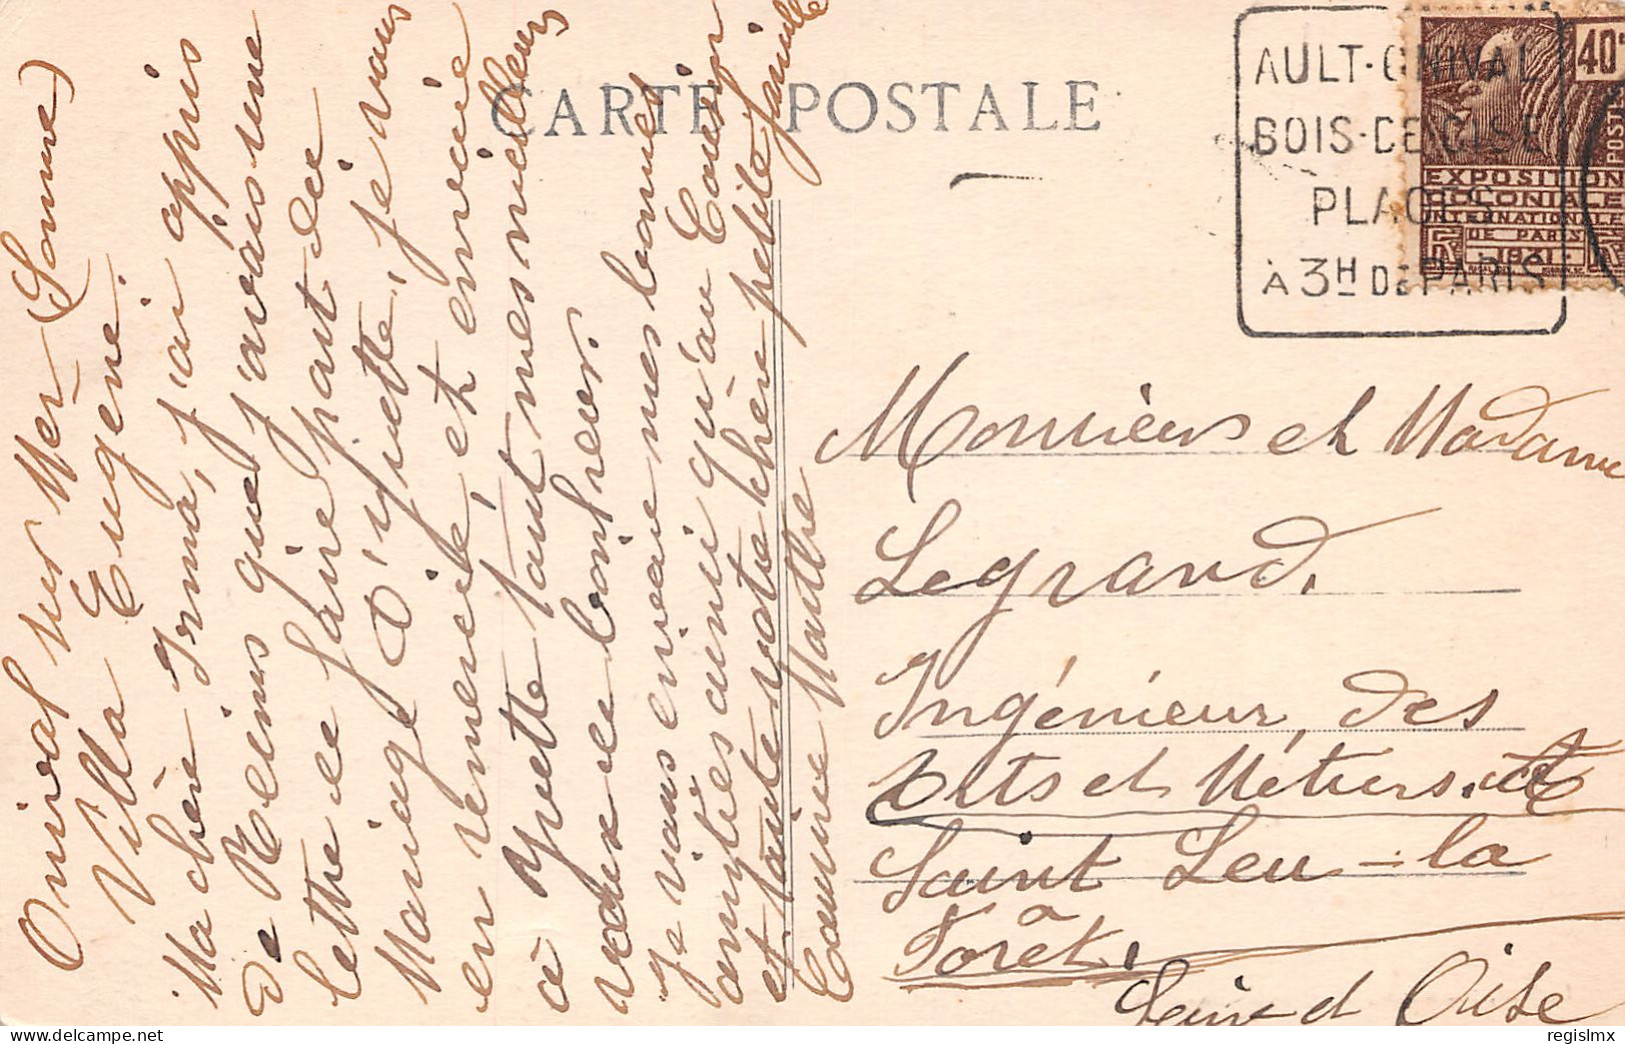 Onival sur Mer (Somme)
Villa Eugène.
Ma chère Irma, j'ai appris
de Reims que j'avais une
lettre de faire part du
Mariage d'Yvette, je vous
en remercie, et envoie
à Yvette tout mes meilleurs
vœux de bonheur.
Je vous envoie mes bonnes
amitiés ainsi qu'au Cousin
et toute votre chère petite famille
Cousine Marthe
CARTE POSTALE
AULT-ONIVAL
BOIS-DE CISE
PLAGES
À 3H DE PARIS
40c
POSTES
EXPOSITION
COLONIALE
INTERNATIONALE
DE PARIS
1931
RF
RF
Monsieur et Madame
Legrand.
Ingénieur des
Arts et Métiers.
Saint Leu-la
Forêt.
Seine et Oise
regislmx